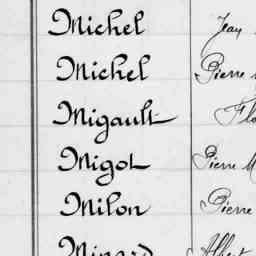 Michel Jean
Michel Pierre
Migault Flo
Migot Pierre M
Milon Pierre
Minard Albert